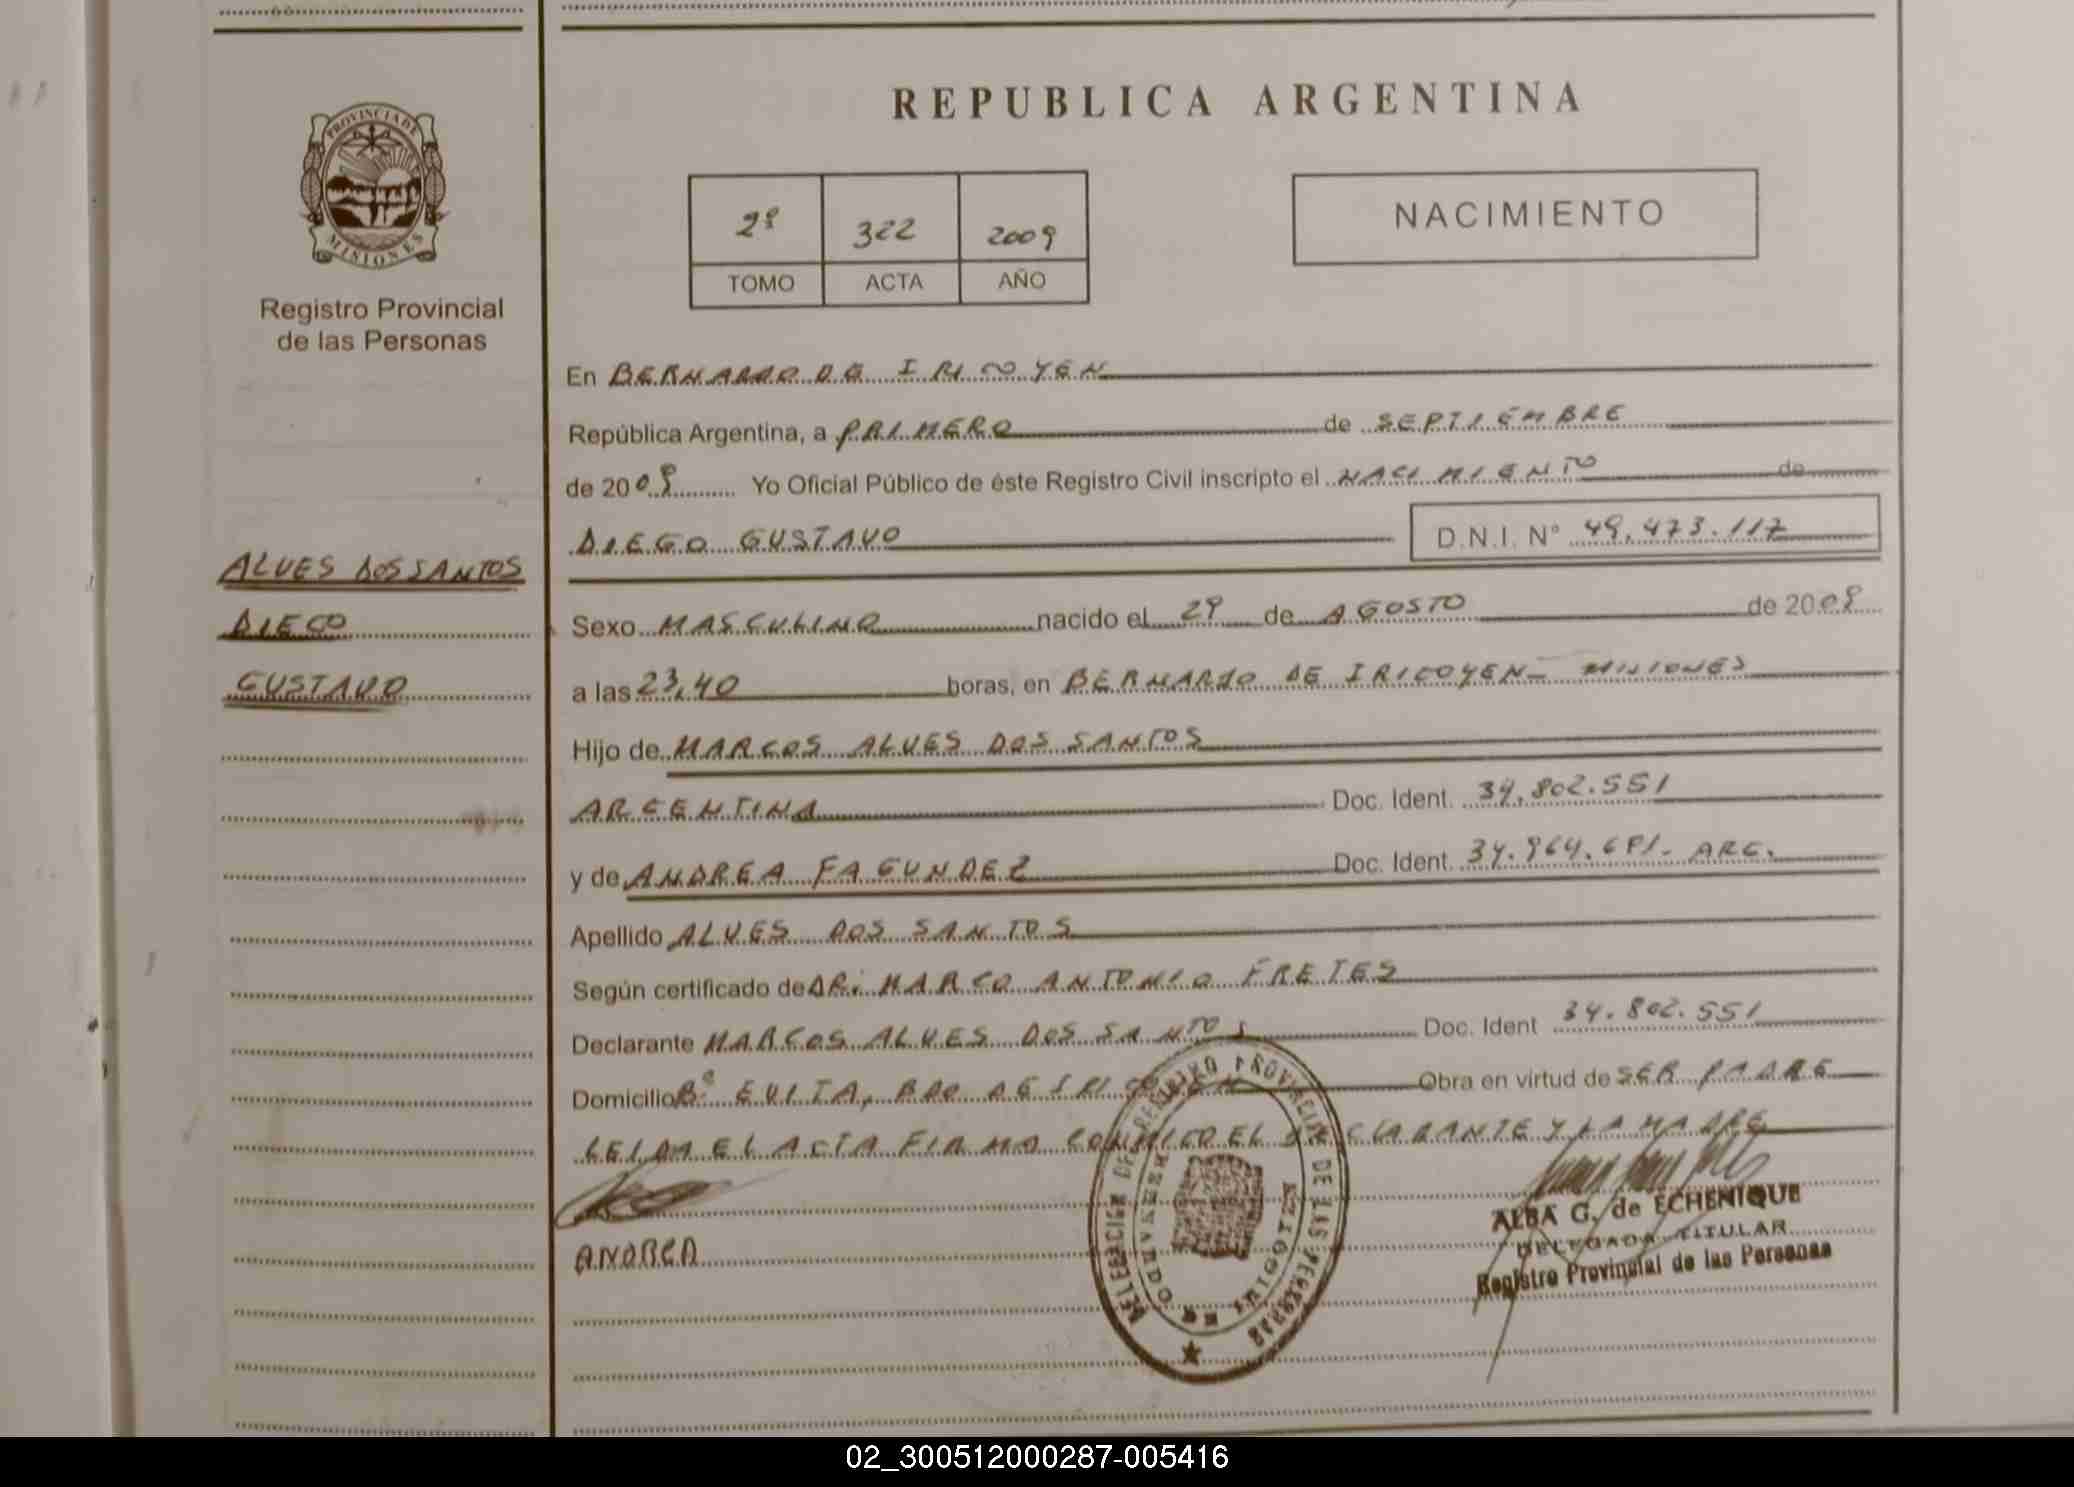 REPUBLICA ARGENTINA
PROVINCIA DE
MISIONES
Registro Provincial
de las Personas
2º 322 2009
TOMO ACTA AÑO
NACIMIENTO
En BERNARDO DE IRIGOYEN
República Argentina, a PRIMERO de SEPTIEMBRE
de 2009 Yo Oficial Público de éste Registro Civil inscripto el NACIMIENTO de
DIEGO GUSTAVO D.N.I. Nº 49.473.117
ALVES DOS SANTOS
DIEGO
GUSTAVO
Sexo MASCULINO nacido el 29 de AGOSTO de 2009
a las 23,40 horas, en BERNARDO DE IRIGOYEN - MISIONES
Hijo de MARCOS ALVES DOS SANTOS
ARGENTINA Doc. Ident. 34.802.551
y de ANDREA FAGUNDEZ Doc. Ident. ARG.
Apellido ALVES DOS SANTOS
Según certificado de DR. MARCO ANTONIO FRETES
Declarante MARCOS ALVES DOS SANTOS Doc. Ident 34.802.551
Domicilio Bº EVITA, BDO DE IRIGOYEN Obra en virtud de SER PADRE
LEIDA EL ACTA FIRMO CONMIGO EL DECLARANTE Y LA MADRE
ANDREA
DELEGACION DEL REGISTRO PROVINCIAL DE LAS PERSONAS
BERNARDO DE IRIGOYEN
ALBA G. de ECHENIQUE
DELEGADA TITULAR
Registro Provincial de las Personas
02_300512000287-005416